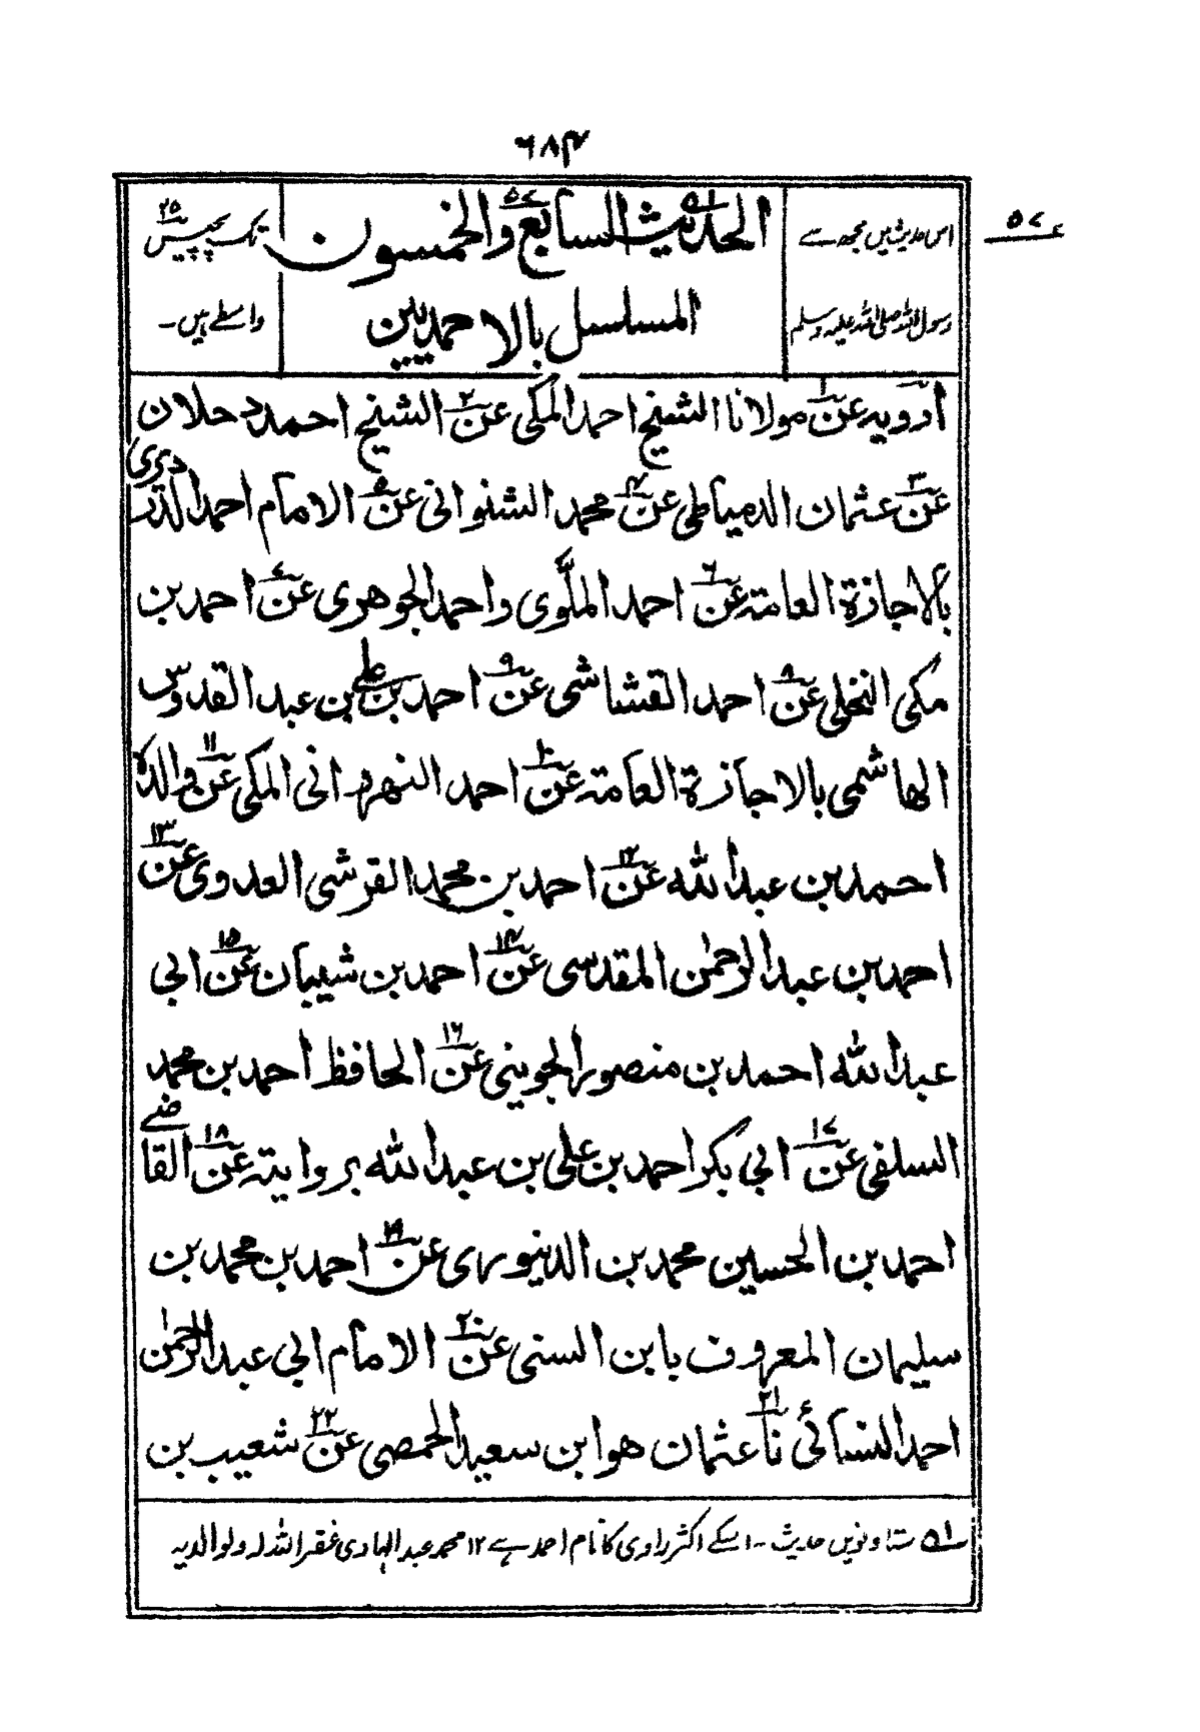 ۶۸۴
۵۷ء
اس حدیث میں مجھ سے
رسول اللہ صلی اللہ علیہ وسلم
الحدیث السابع والخمسون
۵۷
المسلسل بالاحمدیین
تک پچیس ۲۵
واسطے ہیں۔
اَرویہ عن۱ مولانا الشیخ احمد المکی عن۲ الشیخ احمد دحلان
عن۳ عثمان الدمیاطی عن۴ محمد الشنوانی عن۵ الامام احمد الدردیری
بالاجازۃ العامۃ عن۶ احمد الملَّوی واحمد الجوھری عن۷ احمد بن
مکی النخلی عن۸ احمد القشاشی عن۹ احمد بن علی بن عبد القدوس
الھاشمی بالاجازۃ العامۃ عن۱۰ احمد النھروانی المکی عن۱۱ والدہ
احمد بن عبد اللہ عن۱۲ احمد بن محمد القرشی العدوی عن۱۳
احمد بن عبد الرحمٰن المقدسی عن۱۴ احمد بن شیبان عن۱۵ ابی
عبد اللہ احمد بن منصور الجوینی عن۱۶ الحافظ احمد بن محمد
السلفی عن۱۷ ابی بکر احمد بن علی بن عبد اللہ بروایتہ عن۱۸ القاضی
احمد بن الحسین محمد بن الدینوری عن۱۹ احمد بن محمد بن
سلیمان المعروف بابن السنی عن۲۰ الامام ابی عبد الرحمٰن
احمد النسائی نا۲۱ عثمان ھو ابن سعید الحمصی عن۲۲ شعیب بن
لہ ستاونویں حدیث ۔ اسکے اکثر راوی کا نام احمد ہے ۱۲ محمد عبد الہادی غفر اللہ لہ ولوالدیہ